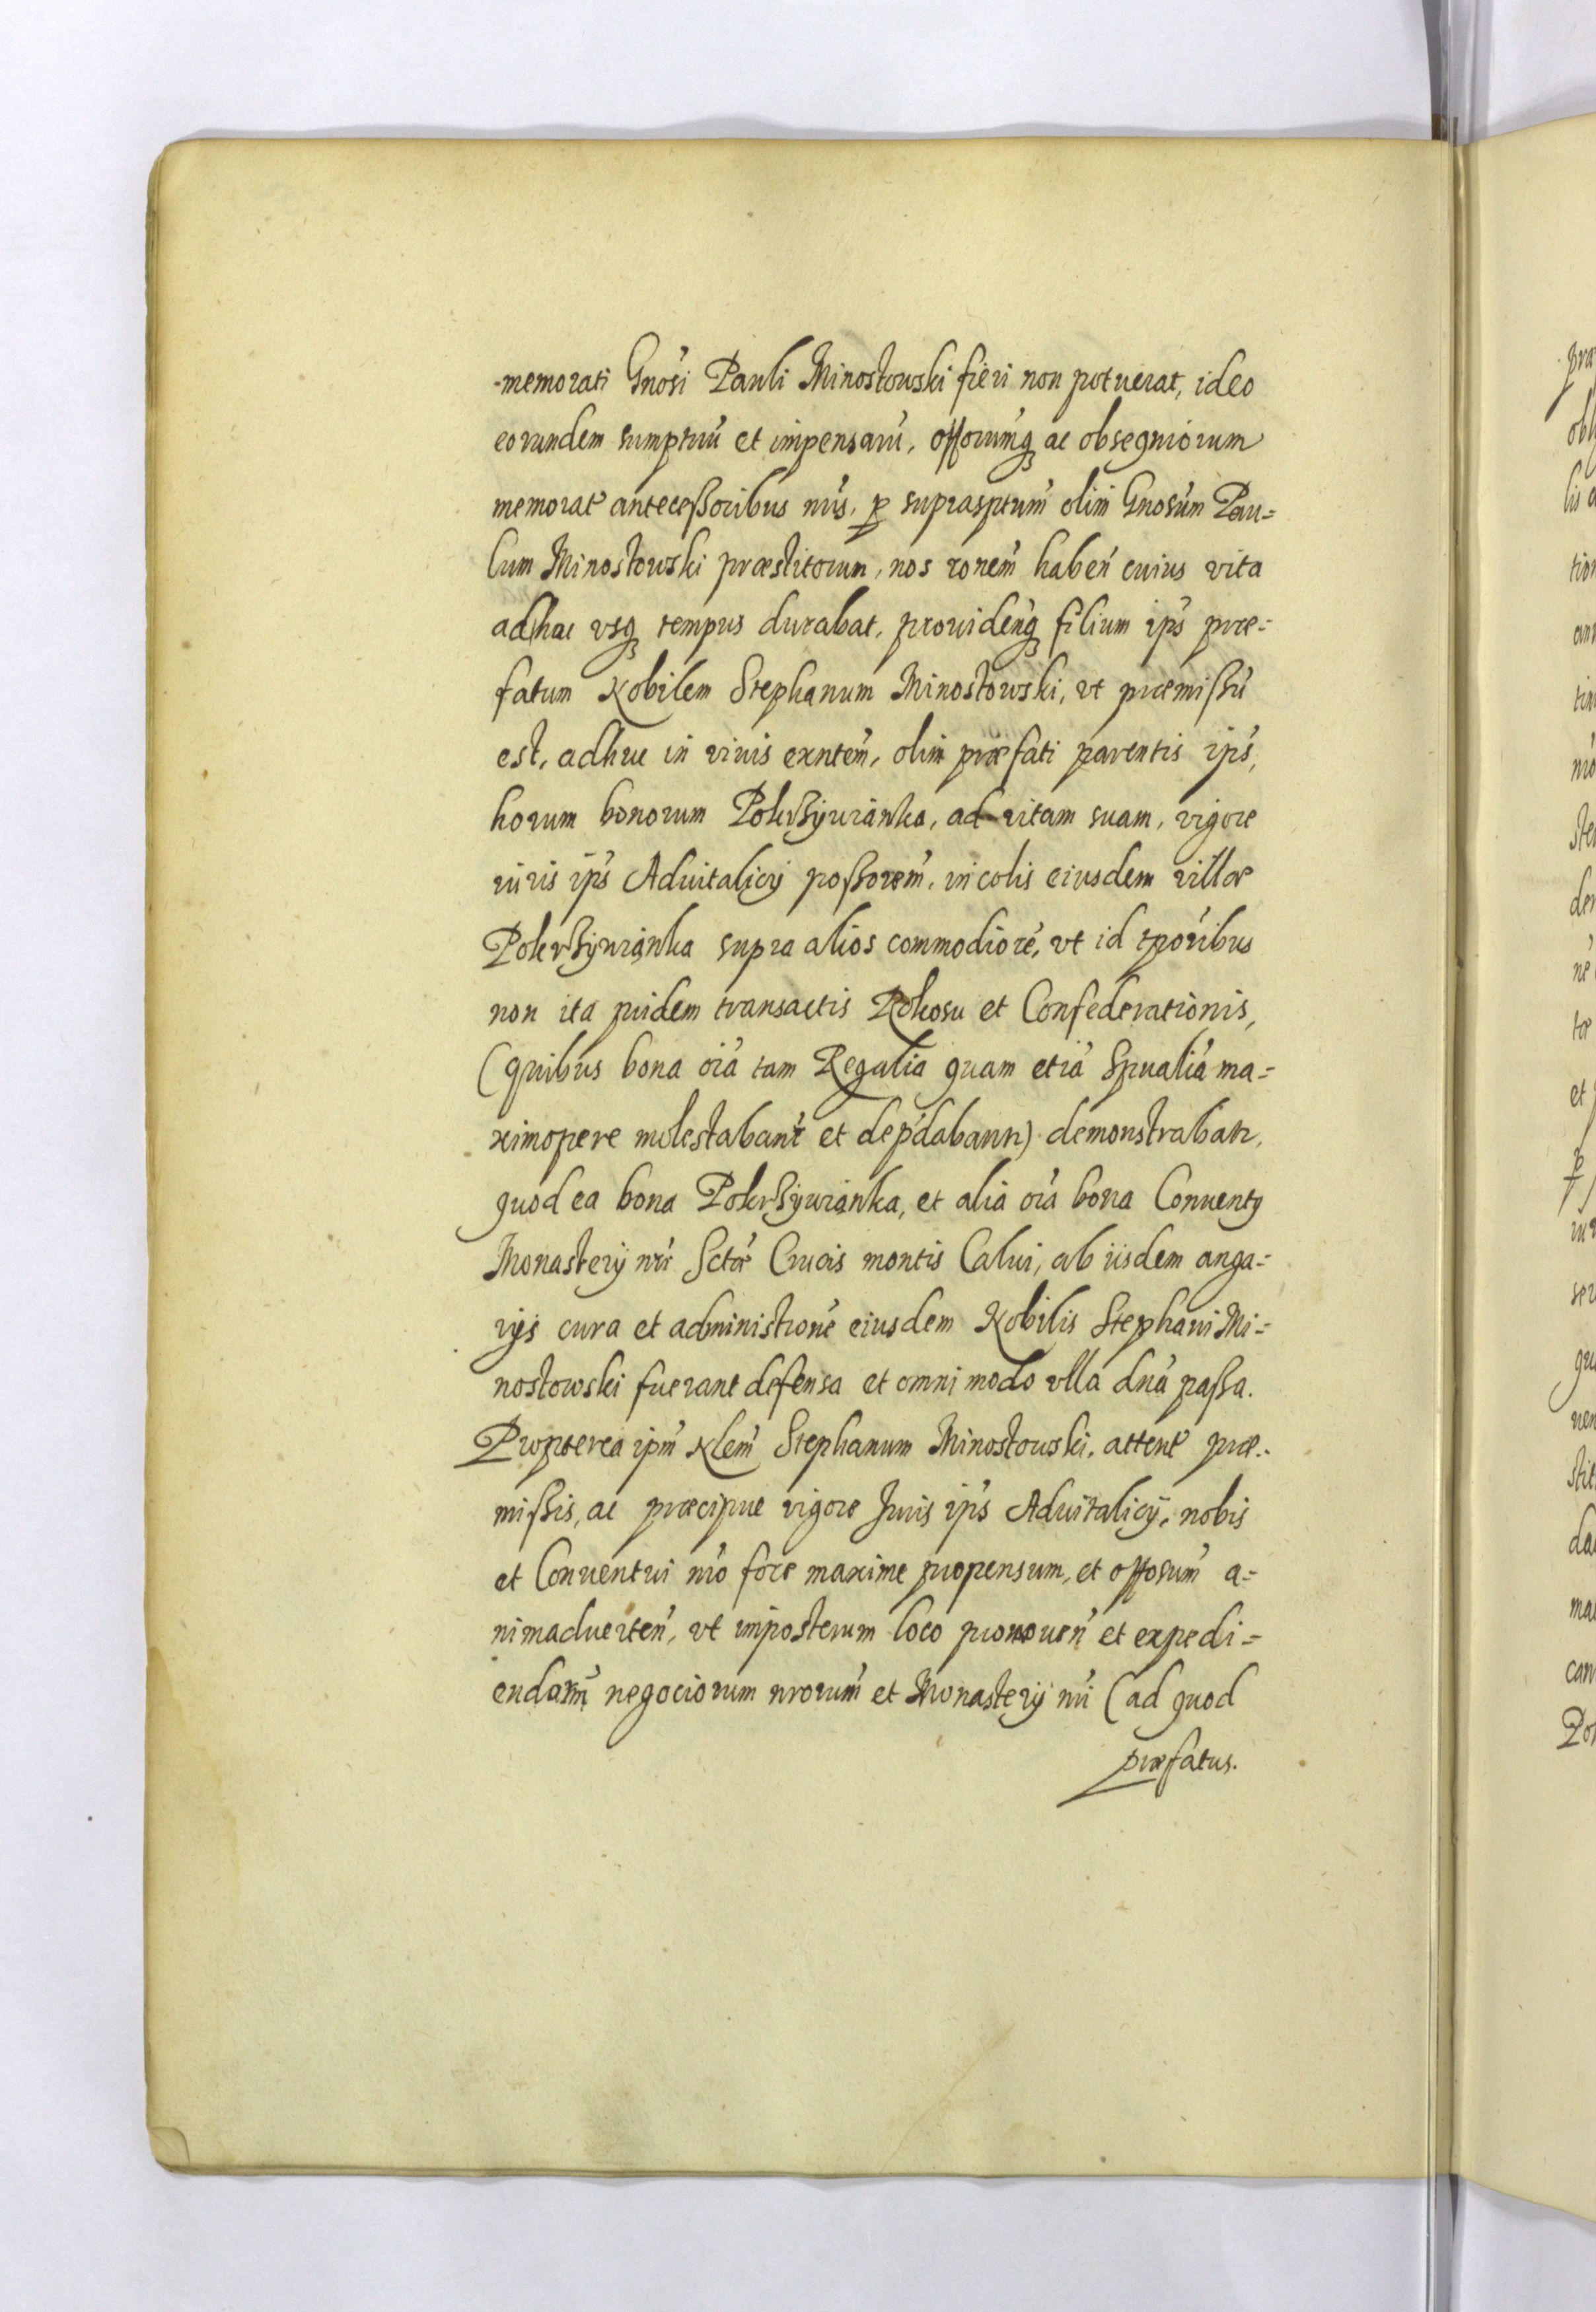 -memorati Gnosi Pauli Minostowski fieri non potuerat, ideo
eorundem sumptuū et impensarū, offorumq ac obsequiorum
memorat antecessoribus nris, p suprasptum olim Gnosum Pau=
lum Minostowski præstitorum, nos ronem haben cuius vita
adhac vsq tempus durabat, prouidenq filium ips præ=
fatum Nobilem Stephanum Minostowski, vt præmissū
est, adhuc in viuis exntem, olim præfati parentis ips,
horum bonorum Pokrzÿwiánka, ad vitam suam, vigore
iuris ips Aduitalicij possorem, incolis eiusdem villæ
Pokrzÿwiánka supra alios commodiorē, vt id tporibus
non ita pridem transactis Rokosu et Confederationis,
(quibus bona oia tam Regalia quam etiā Spualia ma=
ximopere molestabantr et depdabantr) demonstrabatr,
quod ea bona Pokrzÿwiánka, et alia oia bona Conuentq
Monasterij nri Sctæ Crucis montis Calui, ab iisdem anga=
rijs cura et administrone eiusdem Nobilis Stephani Mi=
nostowski fuerant defensa et omni modo vlla dna passa.
Propterea ipm Nlem Stephanum Minostowski, attent præ=
missis, ac præcipue vigore Juris ips Aduitalicij, nobis
et Conuentui nro fore maxime propensum, et offosum a=
nimaduerten, vt imposterum loco promouen et expedi=
endarm negociorum nrorum et Monasterij nri (ad quod
præfatus.